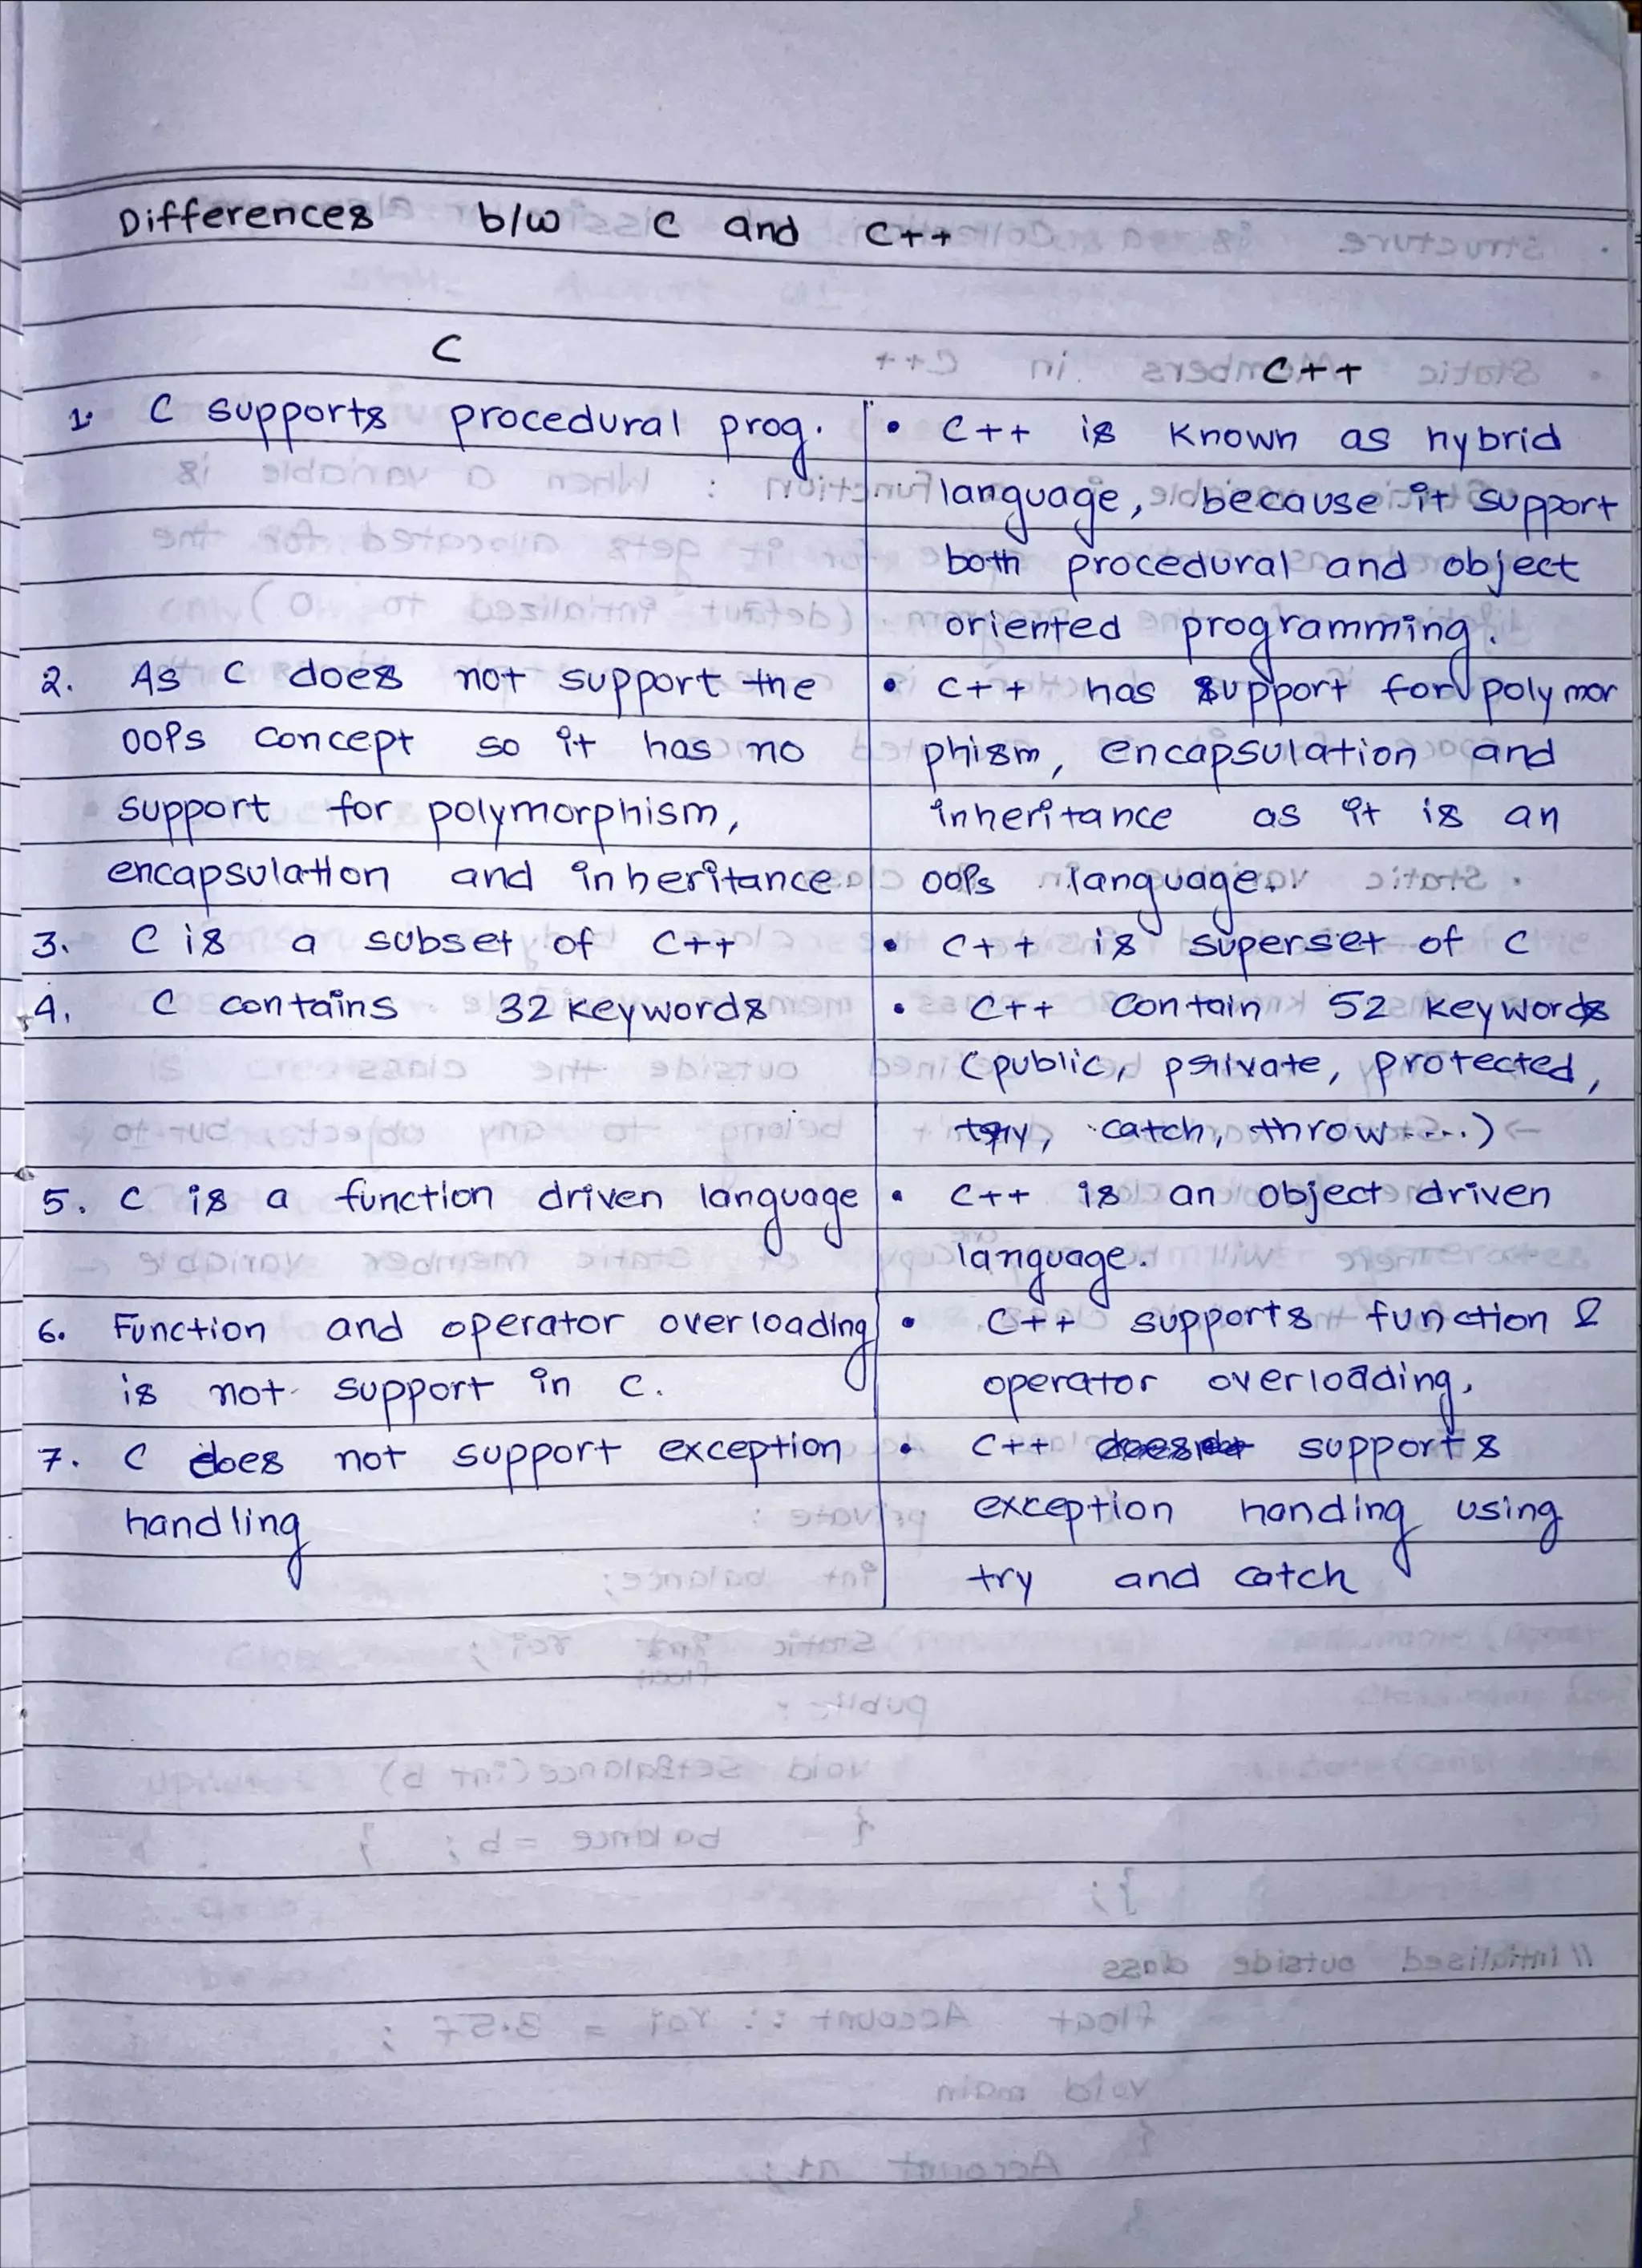 Differences b/w C and C++
C
C++
1. C supports procedural prog.
2. As C does not support the
OOPs concept so it has no
support for polymorphism,
encapsulation and inheritance
3. C is a subset of C++
4. C contains 32 keywords
5. C is a function driven language
6. Function and operator overloading
is not support in C.
7. C does not support exception
handling
• C++ is known as hybrid
language, because it support
both procedural and object
oriented programming.
• C++ has support for polymor
phism, encapsulation and
inheritance as it is an
OOPs language.
• C++ is superset of C
• C++ contain 52 keywords
(public, private, protected,
try, catch, throw.....)
• C++ is an object driven
language.
• C++ supports function &
operator overloading.
• C++ supports
exception handing using
try and catch